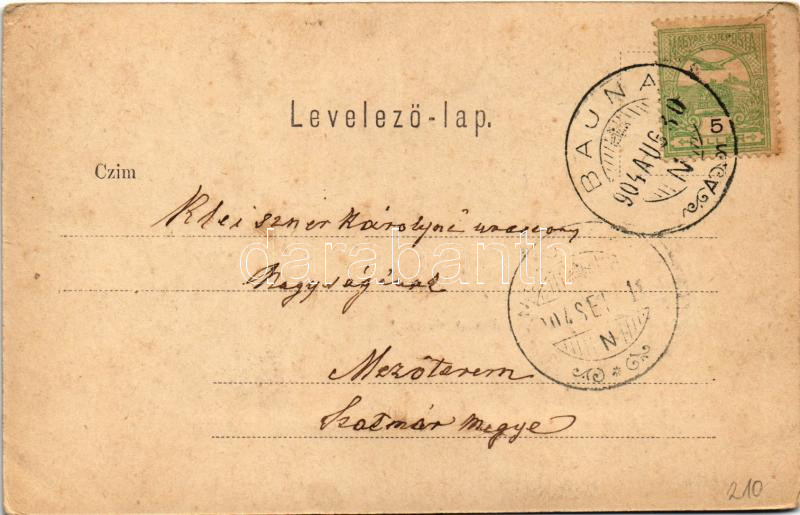 MAGYAR KIR. POSTA
5
BAUNA
904 AUG 30
N
A
Levelező-lap.
Czim
Kleiszner Károlyné urasszony
darabanth
Nagyságának
904 SEP 1
N
Mezőterem
Szatmár megye
210